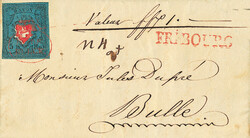 Valeur ffs 1.
N 4
FRIBOURG
Monsieur Jules Dupré
Bulle